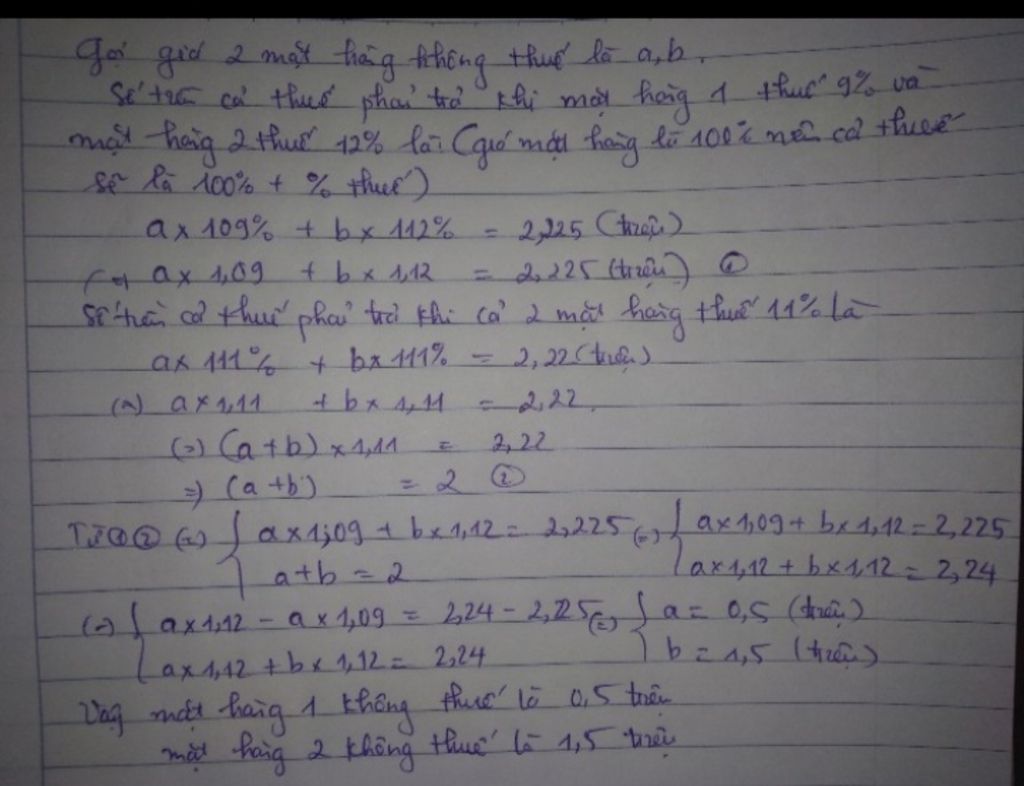 Gọi giá 2 mặt hàng không thuế là a, b.
Số tiền cả thuế phải trả khi mặt hàng 1 thuế 9% và
mặt hàng 2 thuế 12% là: (giá mặt hàng là 100% nên cả thuế
sẽ là 100% + % thuế)
a x 109% + b x 112% = 2,225 (triệu)
(=) a x 1,09 + b x 1,12 = 2,225 (triệu) ①
Số tiền cả thuế phải trả khi cả 2 mặt hàng thuế 11% là
a x 111% + b x 111% = 2,22 (triệu)
(=) a x 1,11 + b x 1,11 = 2,22.
(=) (a + b) x 1,11 = 2,22
=) (a + b) = 2 ②
Từ ① ② (=) { a x 1,09 + b x 1,12 = 2,225 (=) { a x 1,09 + b x 1,12 = 2,225
a + b = 2 a x 1,12 + b x 1,12 = 2,24
(=) { a x 1,12 - a x 1,09 = 2,24 - 2,225 (=) { a = 0,5 (triệu)
a x 1,12 + b x 1,12 = 2,24 b = 1,5 (triệu)
Vậy mặt hàng 1 không thuế là 0,5 triệu
mặt hàng 2 không thuế là 1,5 triệu